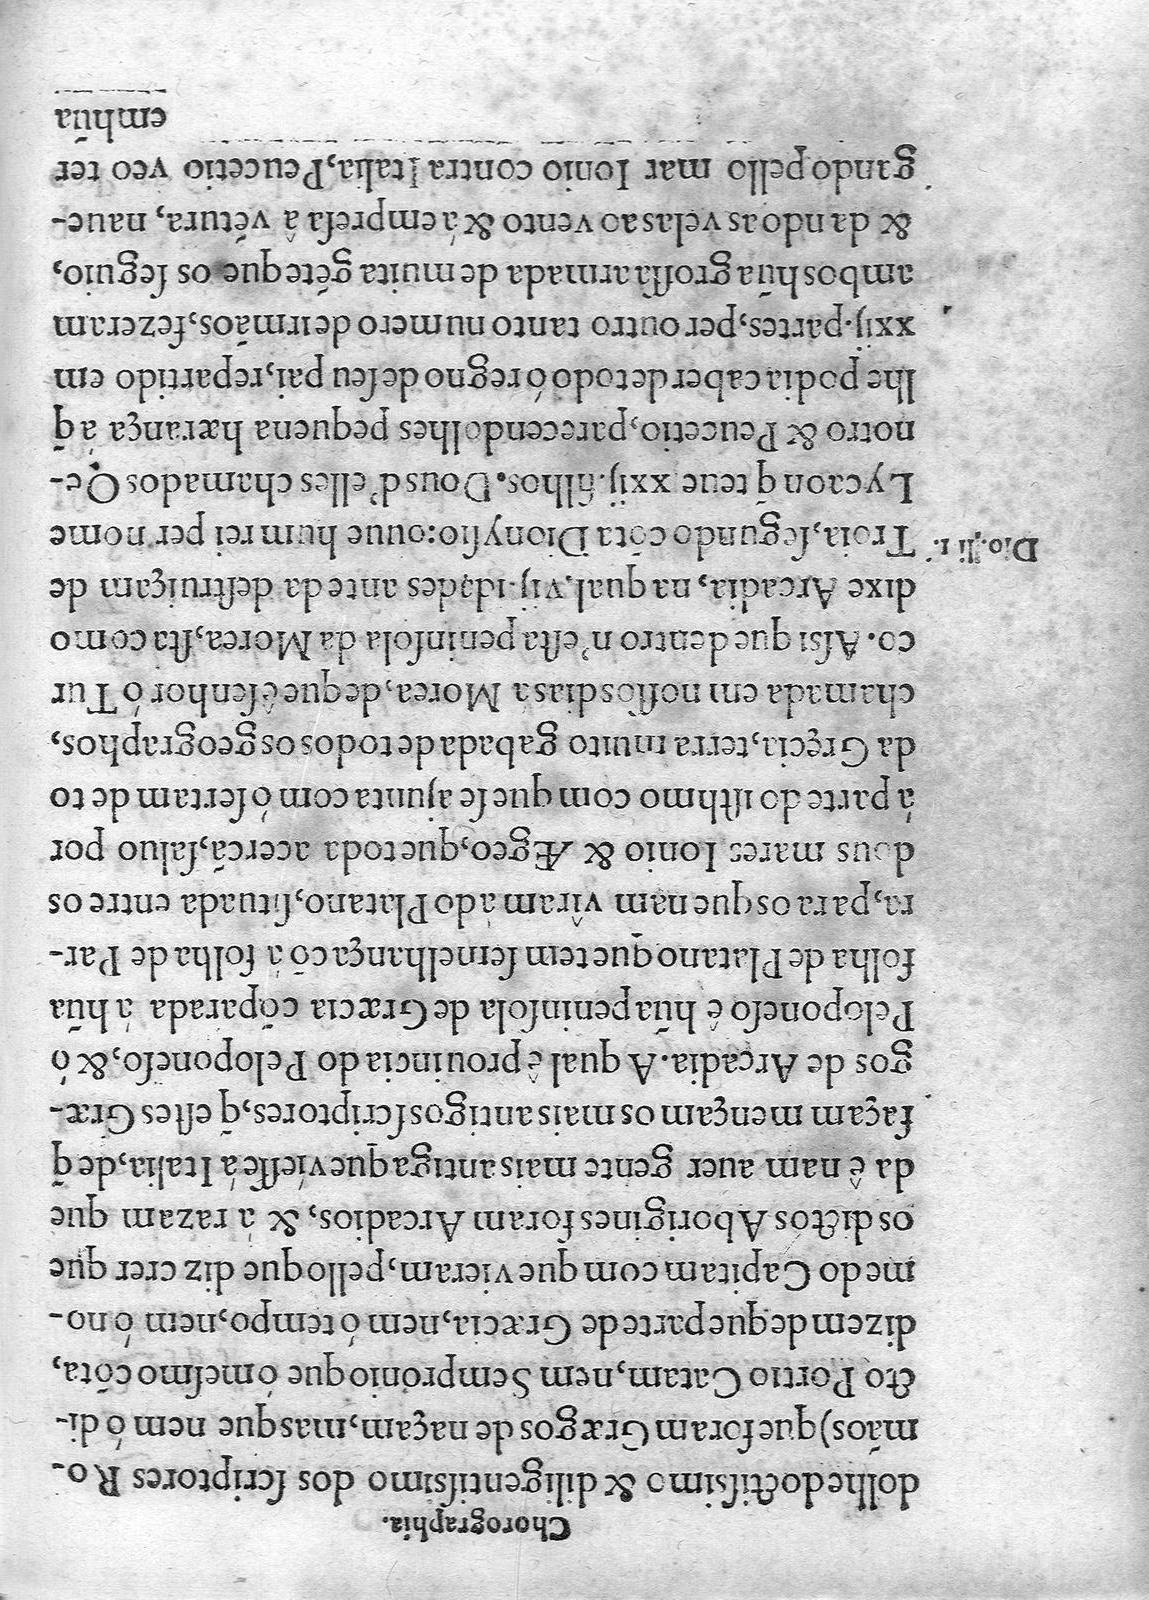 Chorographia.
dolhe doctiſsimo & diligentiſsimo dos ſcriptores Ro-
mãos) que foram Græegos de naçam, mas que nem ó di-
cto Portio Catam, nem Sempronio que ó meſmo cõta,
dizem de que parte de Græcia, nem ó tempo, nem ó no-
me do Capitam com que vieram, pello que diz crer que
os dictos Aborigines foram Arcadios, & á razam que
da ê nam auer gente mais antiga que viéſſe á Italia, de q̃
façam mençam os mais antigos ſcriptores, q̃ eſtes Græ-
gos de Arcadia. A qual ê prouincia do Peloponeſo, & ó
Peloponeſo ê hũa peninſola de Græcia cõparada á hũa
folha de Platano que tem ſemelhança cõ á folha de Par-
ra, para os que nam vîram á do Platano, ſituada entre os
dous mares Ionio & Ægeo, que toda acercã, ſaluo por
á parte do iſthmo com que ſe ajunta com ó ſertam de to
da Gręcia, terra muito gabada de todos os geographos,
chamada em noſſos dias á Morea, de que ê ſenhor ó Tur
co. Aſsi que dentro n'eſta peninſola da Morea, ſta como
dixe Arcadia, na qual .vij. idades ante da deſtruiçam de
Troia, ſegundo cõta Dionyſio: ouue hum rei per nome
Dio. li 1.
Lycaon q̃ teue xxij. filhos. Dous d'elles chamados Oe-
notro & Peucetio, parecendolhes pequena hærança á q̃
lhe podia caber de todo ó regno de ſeu pai, repartido em
xxij. partes, per outro tanto numero de irmãos, fezeram
ambos hũa groſſa armada de muita gẽte que os ſeguio,
& dando as velas ao vento & á empreſa â vẽtura, naue-
gando pello mar Ionio contra Italia, Peucetio veo ter
em hũa